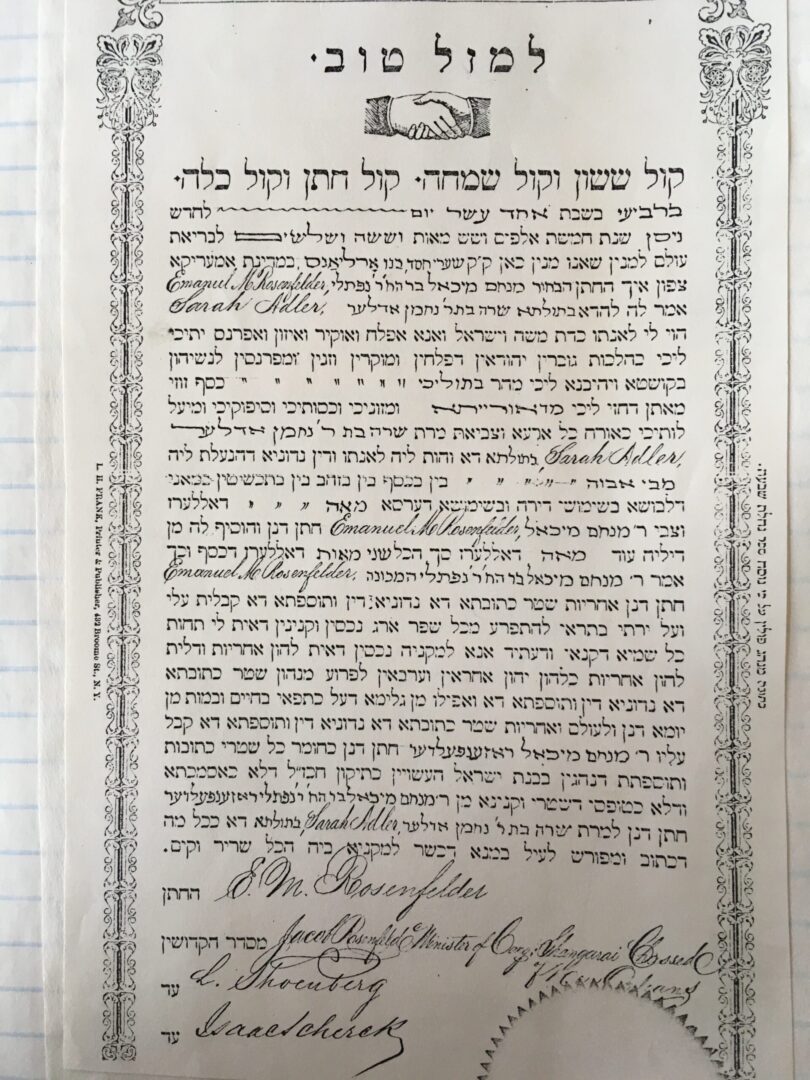 למזל טוב.
קול ששון וקול שמחה. קול חתן וקול כלה.
ברביעי בשבת אחד עשר יום לחדש
ניסן שנת חמשת אלפים ושש מאות וששה ושלשים לבריאת
עולם למנין שאנו מנין כאן ק״ק שערי חסד, בנו ארליאנס, במדינת אמעריקא
צפון איך החתן הבחור מנחם מיכאל בר הח״ר נפתלי, Emanuel M Rosenfelder,
אמר לה להדא בתולתא שרה בת ר׳ נחמן אדלער Sarah Adler,
הוי לי לאנתו כדת משה וישראל ואנא אפלח ואוקיר ואיזון ואפרנס יתיכי
ליכי כהלכות גוברין יהודאין דפלחין ומוקרין וזנין ומפרנסין לנשיהון
בקושטא ויהיבנא ליכי מהר בתוליכי " " " " " " כסף זוזי
מאתן דחזי ליכי מדאורייתא ומזוניכי וכסותיכי וסיפוקיכי ומיעל
לותיכי כאורח כל ארעא וצביאת מרת שרה בת ר׳ נחמן אדלער
Sarah Adler, בתולתא דא והות ליה לאנתו ודין נדוניא דהנעלת ליה
מבי אבוה " " " " בין בכסף בין בזהב בין בתכשיטין במאני
דלבושא בשימושי דירה ובשימושא דערסא מאה " " " דאללערז
וצבי ר׳ מנחם מיכאל, Emanuel M Rosenfelder, חתן דנן והוסיף לה מן
דיליה עוד מאה דאללערז סך הכל שני מאות דאללערז דכסף וכך
אמר ר׳ מנחם מיכאל בר הח״ר נפתלי המכונה Emanuel M Rosenfelder,
חתן דנן אחריות שטר כתובתא דא נדוניא דין ותוספתא דא קבלית עלי
ועל ירתי בתראי להתפרע מכל שפר ארג נכסין וקנינין דאית לי תחות
כל שמיא דקנאי ודעתיד אנא למקניה נכסין דאית להון אחריות ודלית
להון אחריות כלהון יהון אחראין וערבאין לפרוע מנהון שטר כתובתא
דא נדוניא דין ותוספתא דא ואפילו מן גלימא דעל כתפאי בחיים ובמות מן
יומא דנן ולעולם ואחריות שטר כתובתא דא נדוניא דין ותוספתא דא קבל
עליו ר׳ מנחם מיכאל ראזענפעלדער חתן דנן כחומר כל שטרי כתובות
ותוספתת דנהגין בבנת ישראל העשויין כתיקון חכז״ל דלא כאסמכתא
ודלא כטופסי דשטרי וקנינא מן ר׳ מנחם מיכאל בר הח״ר נפתלי ראזענפעלדער
חתן דנן למרת שרה בת ר׳ נחמן אדלער, Sarah Adler, בתולתא דא ככל מה
דכתוב ומפורש לעיל במנא דכשר למקניא ביה הכל שריר וקים.
E. M. Rosenfelder החתן
מסדר הקדושין Jacob Rosenfeld Minister of Cong. Shangarai Chassed
of New Orleans
עד L. Shoenberg
עד Isaac Scherck
L. H. FRANK, Printer & Publisher, 432 Broome St., N. Y.